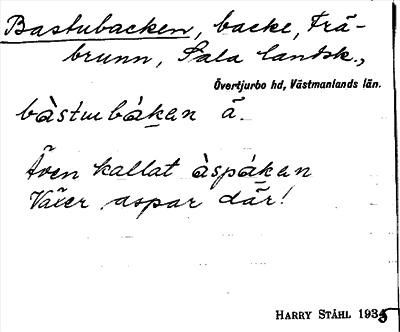 Bastubacken, backe, Trä-
brunn, Sala landsk.,
Övertjurbo hd, Västmanlands län.
bàstubàkan ä.
Även kallat àspàkan
Växer aspar där!
HARRY STÅHL 1935